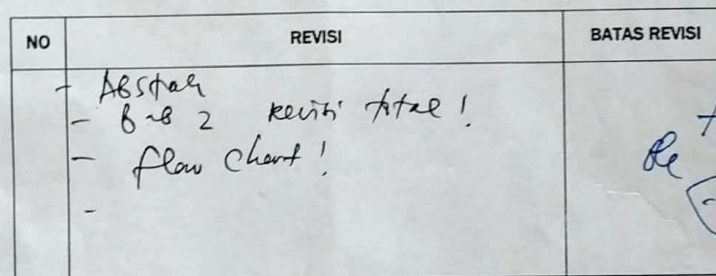 NO REVISI BATAS REVISI
- Abstrak
- Bab 2 Revisi total!
- Flow Chart!
-